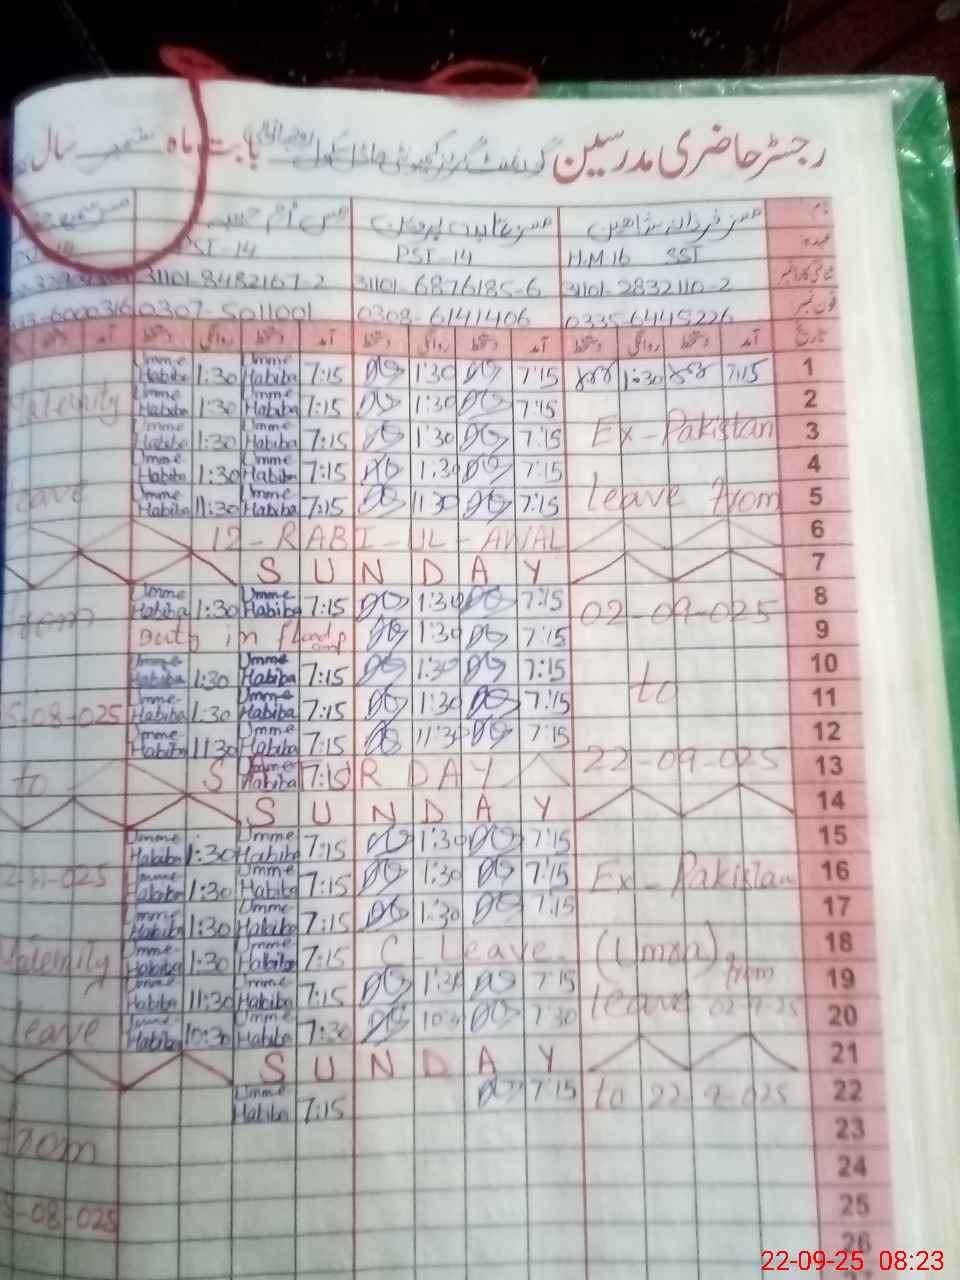 رجسٹر حاضری مدرسین گورنمنٹ گرلز کمیونٹی ماڈل سکول بابت ماہ ستمبر سال
نام مسز فرزانہ شاہین مس ام حبیبہ
عہدہ H.M 16 SST PST-14 PST-14
31101-2832110-2 31101-6876185-6 31101-8482167-2
فون نمبر 0335-6445226 0308-6141406 0307-5011001 6000316
تاریخ آمد دستخط روانگی دستخط آمد دستخط روانگی دستخط آمد دستخط روانگی دستخط آمد
1 7:15 1:30 7:15 1:30 7:15 Umme Habiba 1:30 Umme Habiba
2 7:15 1:30 7:15 Umme Habiba 1:30 Umme Habiba Maternity
3 Ex-Pakistan 7:15 1:30 7:15 Umme Habiba 1:30 Umme Habiba
4 7:15 1:30 7:15 Umme Habiba 1:30 Umme Habiba
5 leave from 7:15 11:30 7:15 Umme Habiba 11:30 Umme Habiba leave
6 12-RABI-UL-AWAL
7 SUNDAY
8 02-09-025 7:15 1:30 7:15 Umme Habiba 1:30 Umme Habiba from
9 7:15 1:30 Duty in flood camp
10 to 7:15 1:30 7:15 Umme Habiba 1:30 Umme Habiba
11 7:15 1:30 7:15 Umme Habiba 1:30 Umme Habiba 5-08-025
12 7:15 11:30 7:15 Umme Habiba 11:30 Umme Habiba
13 22-09-025 SATURDAY 7:15 Umme Habiba to
14 SUNDAY
15 7:15 1:30 7:15 Umme Habiba 1:30 Umme Habiba
16 Ex-Pakistan 7:15 1:30 7:15 Umme Habiba 1:30 Umme Habiba 025
17 7:15 1:30 7:15 Umme Habiba 1:30 Umme Habiba
18 (Umra) C-Leave. 7:15 Umme Habiba 1:30 Umme Habiba Maternity
19 from 7:15 1:30 7:15 Umme Habiba 11:30 Umme Habiba
20 leave 02-9-25 7:30 10:30 7:30 Umme Habiba 10:30 Umme Habiba leave
21 SUNDAY
22 to 22-9-025 7:15 7:15 Umme Habiba
23 from
24
25 5-08-025
26
22-09-25 08:23